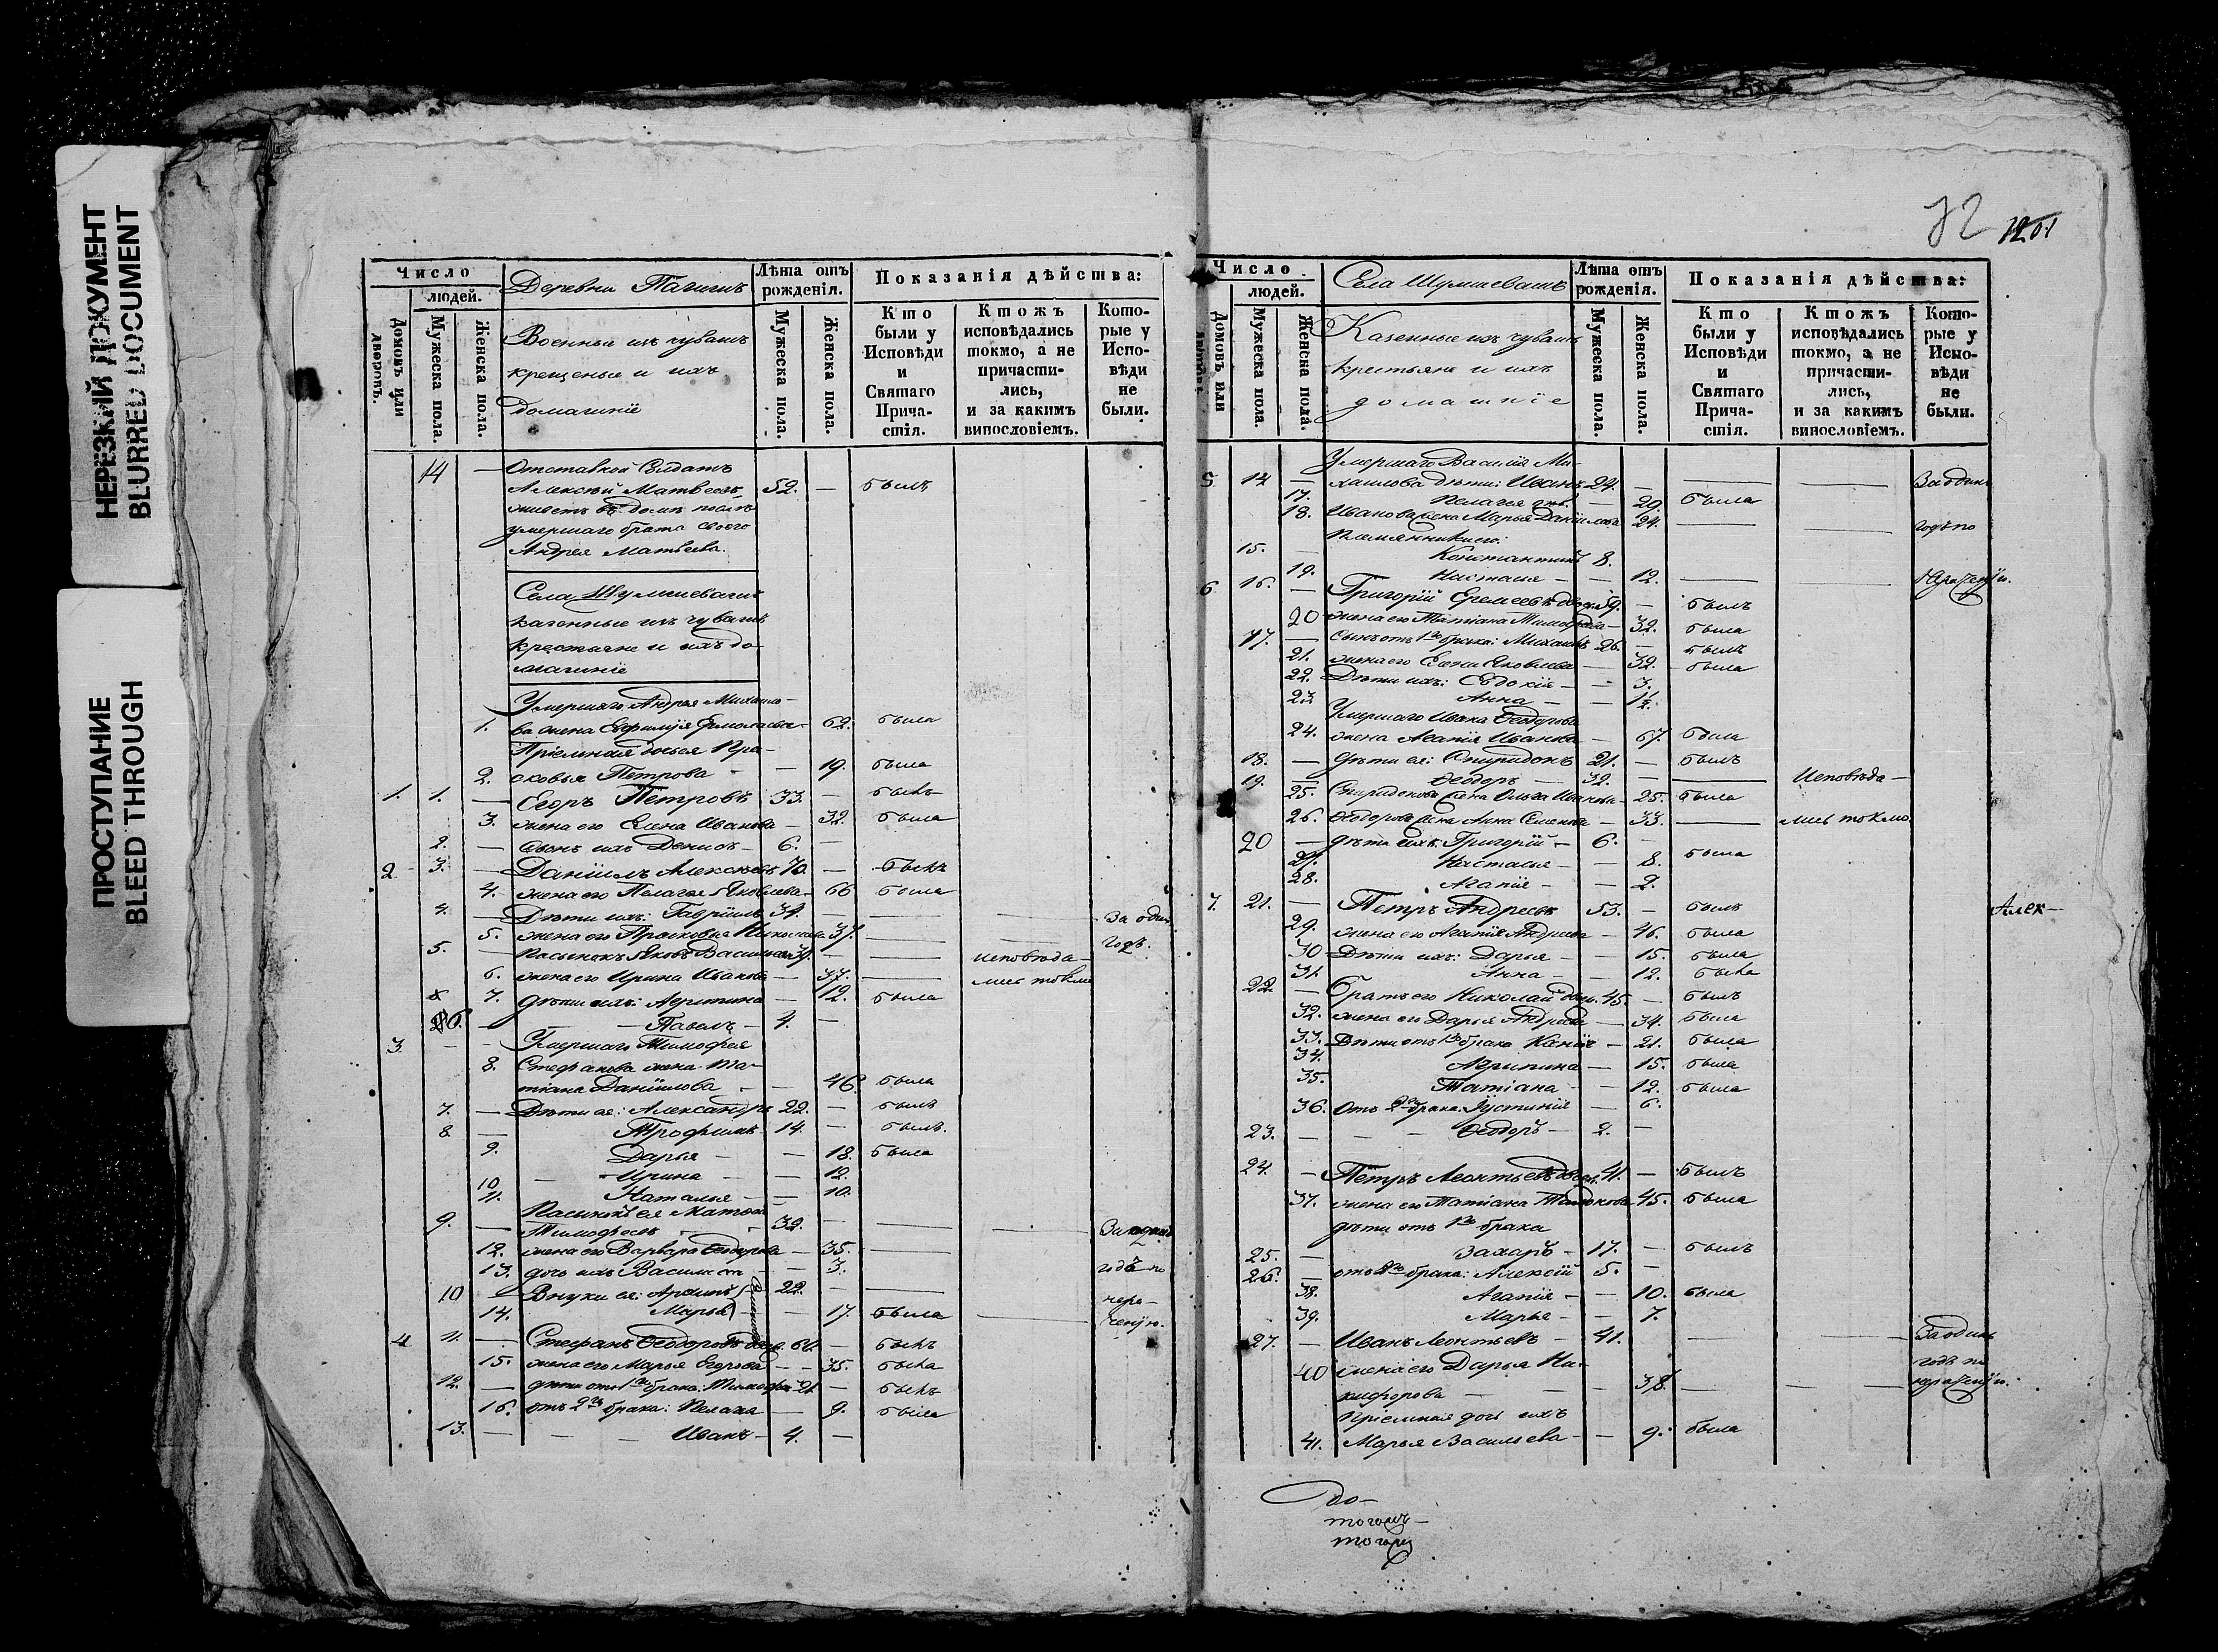 НЕРЕЗКИЙ ДОКУМЕНТ
BLURRED DOCUMENT
ПРОСТУПАНИЕ
BLEED THROUGH
Число
людей.
Домовъ или дворовъ.
Мужеска пола.
Женска пола.
Деревни
Военные изъ чувашъ
крещеные и ихъ
домашніе
Лѣта отъ рожденія.
Мужеска пола.
Женска пола.
Показанія дѣйства:
Кто были у Исповѣди и Святаго Причастія.
Ктожъ исповѣдались токмо, а не причастились, и за какимъ винословіемъ.
Которые у Исповѣди не были.
14 — Отставной Солдатъ
Алексѣй Матвеевъ 52. — былъ
живетъ въ домѣ послѣ
умершаго брата своего
Андрея Матвеева.
Села
казенные изъ чувашъ
крестьяне и ихъ до-
машніе
Умершаго Андрея Михайло-
1. ва жена Ермолаева — 62. была
Пріемная дочь ея Пра-
2. сковья Петрова — — 19. была
1. 1. — Егоръ Петровъ 33. — былъ
3. жена его Елена Иванова — 32. была
2. — Сынъ ихъ Денисъ — 6. —
2 3. — Даніилъ Алексѣевъ 70. — былъ
4. жена его Пелагея Яковлева — 66 была
4. — Дѣти ихъ: Гавріилъ 34. — — — За одинъ
5. жена его Прасковья 37. — — годъ.
5. — Пасынокъ Яковъ Васильевъ 39. — — исповѣда-
6. жена его Ирина Иванова — 37. — лись токмо
7. дѣти ихъ: Агрипина — 12. была
6. — — Павелъ — 4. —
3 — — Умершаго Тимофея
8. Стефанова жена Та-
тіана Даніилова — — 46. была
7. — Дѣти ея: Александръ 22. — былъ
8 — Трофимъ 14. — былъ.
9. Дарья — — 18. была
10 — Ирина — — 12.
11. Наталья — — 10.
Пасынокъ ея
9. — Тимофеевъ — 32. — — —
12. жена его Варвара Ѳеодорова — 35. —
13. дочь ихъ — 3. годъ по
10 — Внуки ея: 22. — — нера-
14. Марья — 17. была — ченію.
4 11. — Стефанъ Ѳеодоровъ — былъ
15. жена его Марья Егорова — 35. была
12. — дѣти отъ 1го брака: Тимофей 21. — былъ
16. отъ 2го брака: Пелагея — 9. была
13. — — — Иванъ — 4. —
72
Число
людей.
Домовъ или
Мужеска пола.
Женска пола.
Села
Казенные изъ чувашъ
крестьяне и ихъ
домашніе
Лѣта отъ рожденія.
Мужеска пола.
Женска пола.
Показанія дѣйства:
Кто были у Исповѣди и Святаго Причастія.
Ктожъ исповѣдались токмо, а не причастились, и за какимъ винословіемъ.
Которые у Исповѣди не были.
Умершаго Василія Ми-
5 14 — хайлова дѣти: Иванъ 24. — — — За одинъ
17. Пелагея — 20. была
18. Иванова жена Марья Даніилова 24. — — годъ по
Племянники его:
15. — Константинъ 8.
19. Настасья — — 12. — — нераченію.
6 16. — Григорій Еремеевъ — былъ
20 жена его Татіана Тимофеева — 32. была
17. — сынъ отъ 1го брака: Михаилъ 26. — былъ
21. жена его Елена Яковлева — 32. была
22. Дѣти ихъ: Евдокія — — 3.
23 Анна — —
Умершаго Ивана Ѳеодорова
24. жена Агапія Иванова — 67. была
18. — дѣти ея: Спиридонъ 21. — былъ
19. — Ѳеодоръ — 32. — — Исповѣда-
25. Спиридонова жена Ольга Иванова — 25. была
26. Ѳеодорова жена Анна Семенова — 33. — лись токмо
20 — дѣти ихъ: Григорій — 6. —
27. Настасья — — 8. была
28. Агапія — — 2.
7. 21. — Петръ Андреевъ 53. — былъ Алек-
29. жена его Агапія Андреева — 46. была
30 Дѣти ихъ: Дарья — — 15. была
31. Анна — — 12. была
22. — братъ его Николай 45. — былъ
32. жена его Дарья Андреева — 34. была
33. Дѣти отъ 1го брака — 21. была
34. Агрипина — 15. была
35. Татіана — — 12. была
36. Отъ 2го брака: Іустинія — 6.
23. — — — Ѳеодоръ — 2. —
24. — Петръ Леонтьевъ 41. — былъ
37. жена его Татіана 45. была
дѣти отъ 1го брака
25. — Захаръ — 17. — былъ
26. — отъ 2го брака: Алексій 5. —
38. Агапія — — 10. была
39. Марья — — 7.
27. — Иванъ Леонтьевъ — 41. — — За одинъ
40 жена его Дарья Ни- годъ по
кифорова — — — 38. — — — нераченію.
Пріемная дочь ихъ
41. Марья Васильева — — 9. была